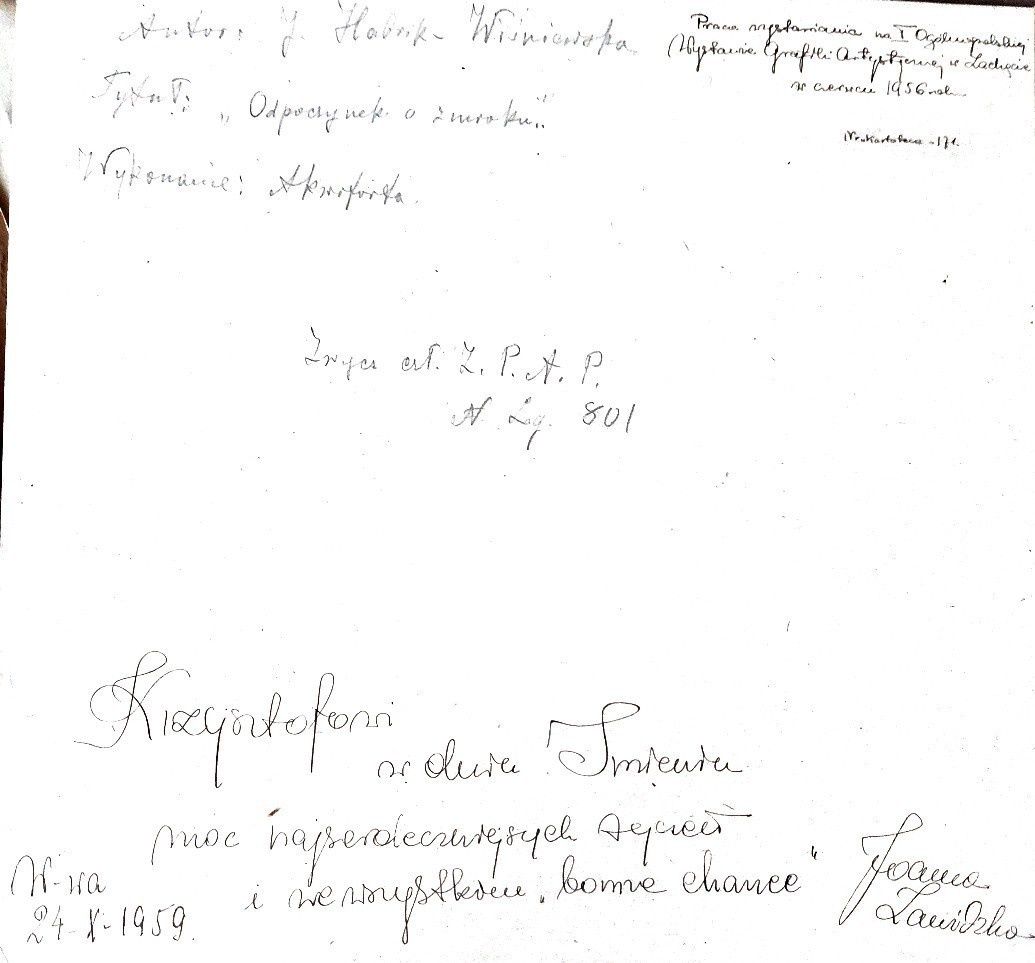 Autor: J. Habrik-Wiśniewska
Tytuł: „Odpoczynek o zmroku".
Wykonanie: Akwaforta.
Praca wystawiana na I Ogólnopolskiej
Wystawie Grafiki Artystycznej w Zachęcie
w czerwcu 1956 roku
Nr 171.
Zwycz. czł. Z. P. A. P.
N Lg. 801
Krzysztofowi
w dniu Imienin
moc najserdeczniejszych życzeń
i we wszystkim „bonne chance"
W-wa
24-X-1959.
Joanna